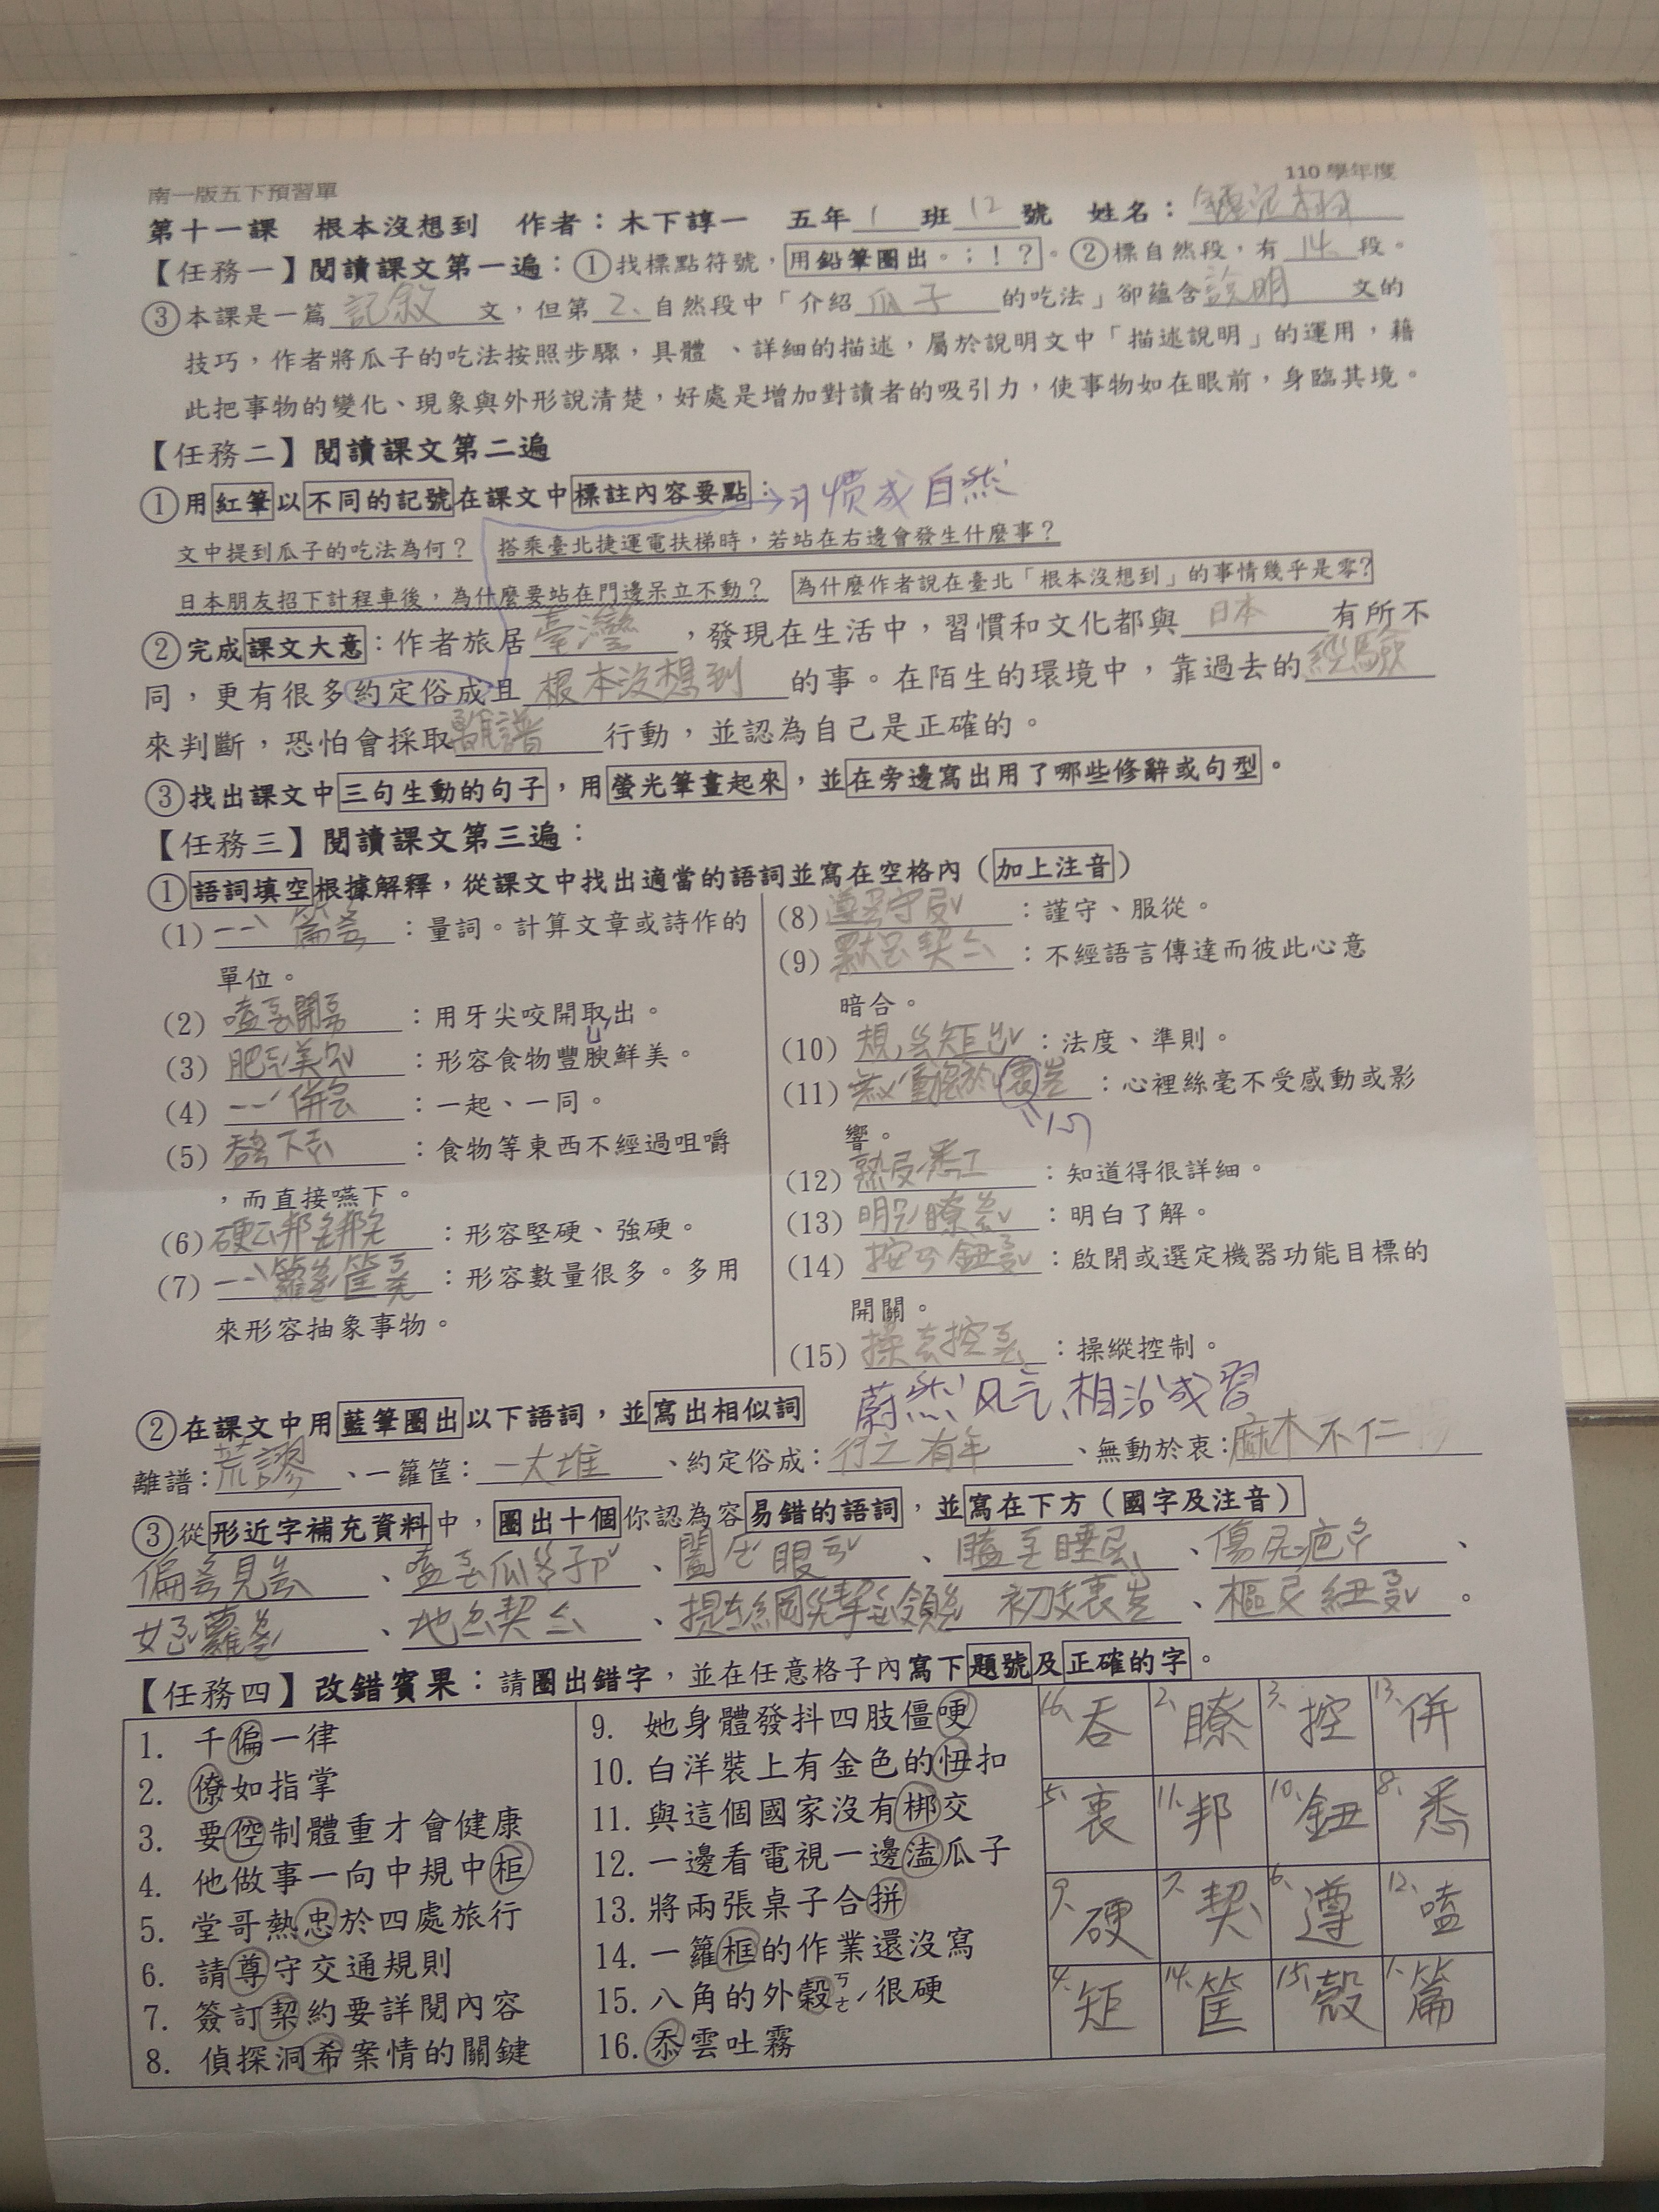 南一版五下預習單
110 學年度
第十一課 根本沒想到 作者：木下諄一 五年 1 班 12 號 姓名：
【任務一】閱讀課文第一遍：①找標點符號，用鉛筆圈出。；！？。②標自然段，有 14 段。
③本課是一篇 記敘 文，但第 2、自然段中「介紹 瓜子 的吃法」卻蘊含 說明 文的
技巧，作者將瓜子的吃法按照步驟，具體 、詳細的描述，屬於說明文中「描述說明」的運用，藉
此把事物的變化、現象與外形說清楚，好處是增加對讀者的吸引力，使事物如在眼前，身臨其境。
【任務二】閱讀課文第二遍
①用紅筆以不同的記號在課文中標註內容要點： →習慣成自然
文中提到瓜子的吃法為何？ 搭乘臺北捷運電扶梯時，若站在右邊會發生什麼事？
日本朋友招下計程車後，為什麼要站在門邊呆立不動？ 為什麼作者說在臺北「根本沒想到」的事情幾乎是零？
②完成課文大意：作者旅居 臺灣 ，發現在生活中，習慣和文化都與 日本 有所不
同，更有很多約定俗成且 根本沒想到 的事。在陌生的環境中，靠過去的 經驗
來判斷，恐怕會採取 離譜 行動，並認為自己是正確的。
③找出課文中三句生動的句子，用螢光筆畫起來，並在旁邊寫出用了哪些修辭或句型。
【任務三】閱讀課文第三遍：
①語詞填空根據解釋，從課文中找出適當的語詞並寫在空格內（加上注音）
(1) 一ㄧˋ篇ㄆㄧㄢ ：量詞。計算文章或詩作的
單位。
(2) 嗑ㄎㄜˋ開ㄎㄞ ：用牙尖咬開取出。
(3) 肥ㄈㄟˊ美ㄇㄟˇ ：形容食物豐腴鮮美。
ㄩˊ
(4) 一ㄧˊ併ㄅㄧㄥˋ ：一起、一同。
(5) 吞ㄊㄨㄣ下ㄒㄧㄚˋ ：食物等東西不經過咀嚼
，而直接嚥下。
(6) 硬ㄧㄥˋ邦ㄅㄤ邦ㄅㄤ ：形容堅硬、強硬。
(7) 一ㄧˋ籮ㄌㄨㄛˊ筐ㄎㄨㄤ ：形容數量很多。多用
來形容抽象事物。
(8) 遵ㄗㄨㄣ守ㄕㄡˇ ：謹守、服從。
(9) 默ㄇㄛˋ契ㄑㄧˋ ：不經語言傳達而彼此心意
暗合。
(10) 規ㄍㄨㄟ矩ㄐㄩˇ ：法度、準則。
(11) 無ㄨˊ動ㄉㄨㄥˋ於ㄩˊ衷ㄓㄨㄥ ：心裡絲毫不受感動或影
響。
(12) 熟ㄕㄡˊ悉ㄒㄧ ：知道得很詳細。
(13) 明ㄇㄧㄥˊ瞭ㄌㄧㄠˇ ：明白了解。
(14) 按ㄢˋ鈕ㄋㄧㄡˇ ：啟閉或選定機器功能目標的
開關。
(15) 操ㄘㄠ控ㄎㄨㄥˋ ：操縱控制。
②在課文中用藍筆圈出以下語詞，並寫出相似詞 蔚然风气、相沿成習
離譜：荒謬 、一籮筐：一大堆 、約定俗成：行之有年 、無動於衷：麻木不仁
③從形近字補充資料中，圈出十個你認為容易錯的語詞，並寫在下方（國字及注音）
偏ㄆㄧㄢ見ㄐㄧㄢˋ 、嗑ㄎㄜˋ瓜ㄍㄨㄚ子ㄗˇ 、闔ㄏㄜˊ眼ㄧㄢˇ 、瞌ㄎㄜ睡ㄕㄨㄟˋ 、傷ㄕㄤ疤ㄅㄚ 、
女ㄋㄩˇ蘿ㄌㄨㄛˊ 、地ㄉㄧˋ契ㄑㄧˋ 、提ㄊㄧˊ綱ㄍㄤ挈ㄑㄧㄝˋ領ㄌㄧㄥˇ 初ㄔㄨ衷ㄓㄨㄥ 、樞ㄕㄨ紐ㄋㄧㄡˇ 。
【任務四】改錯賓果：請圈出錯字，並在任意格子內寫下題號及正確的字。
1. 千偏一律
2. 僚如指掌
3. 要倥制體重才會健康
4. 他做事一向中規中柜
5. 堂哥熱忠於四處旅行
6. 請尊守交通規則
7. 簽訂栔約要詳閱內容
8. 偵探洞希案情的關鍵
9. 她身體發抖四肢僵哽
10. 白洋裝上有金色的忸扣
11. 與這個國家沒有梆交
12. 一邊看電視一邊溘瓜子
13. 將兩張桌子合拼
14. 一籮框的作業還沒寫
15. 八角的外穀ㄎㄜˊ很硬
16. 忝雲吐霧
16、吞 2、瞭 3、控 13、併
5、衷 11、邦 10、鈕 8、悉
9、硬 7、契 6、遵 12、嗑
4、矩 14、筐 15、殼 1、篇